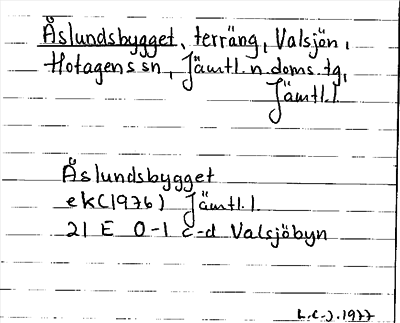 Åslundsbygget, terräng, Valsjön,
Hotagens sn, Jämtl. n. doms. tg,
Jämtl. l.
Åslundsbygget
ek (1976) Jämtl. l.
21 E 0-1 c-d Valsjöbyn
L.C-J. 1977